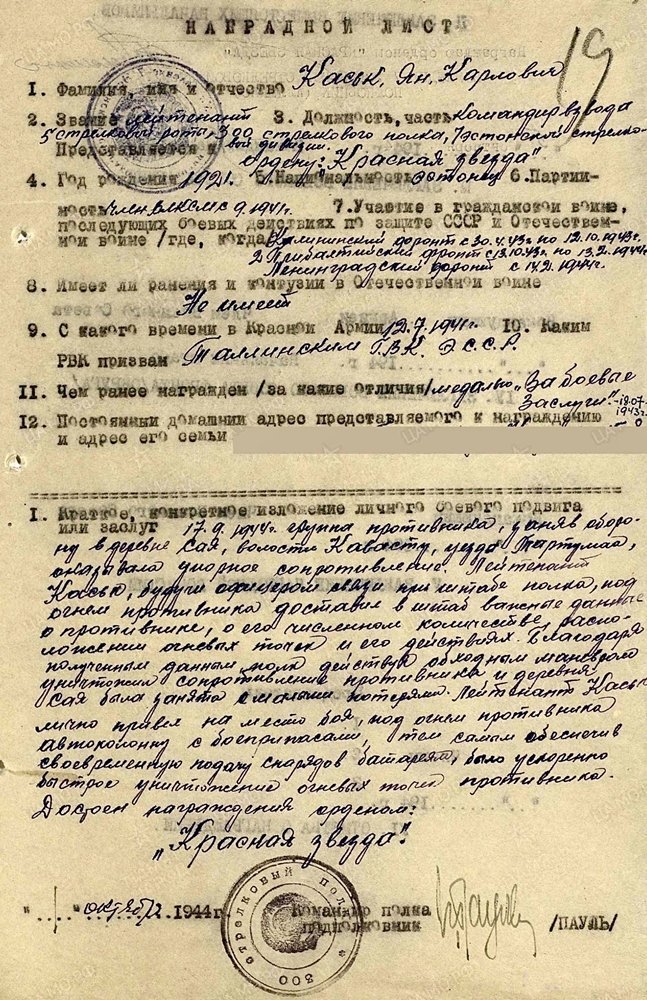 НАГРАДНОЙ ЛИСТ
19
1. Фамилия, имя и отчество Каськ, Ян, Карлович
2. Звание лейтенант 3. Должность, часть командир взвода
5 стрелковой роты, 300 стрелкового полка, 7 Эстонской стрелко-
вой дивизии.
Представляется к Ордену: "Красная звезда"
4. Год рождения 1921. 5. Национальность эстонец 6. Партий-
ность член ВЛКСМ с 9.1941г. 7. Участие в гражданской войне,
последующих боевых действиях по защите СССР и Отечествен-
ной войне /где, когда/ Калининский фронт с 30.4.43г. по 12.10.1943г.
2 Прибалтийский фронт с 13.10.43г. по 13.2.1944г.
Ленинградский фронт с 14.2.1944г.
8. Имеет ли ранения и контузии в Отечественной войне
Не имеет
9. С какого времени в Красной Армии 12.7.1941г. 10. Каким
РВК призван Таллинским ГВК. Э.С.С.Р.
11. Чем ранее награжден /за какие отличия/ медалью "За боевые
Заслуги" - 18.07.
1943г.
12. Постоянный домашний адрес представляемого к награждению
и адрес его семьи
1. Краткое, конкретное изложение личного боевого подвига
или заслуг 17.9.1944г. группа противника, заняв оборо-
ну в деревне Сая, волости Кавасту, уезда Тартумаа,
оказывала упорное сопротивление. Лейтенант
Каськ, будучи офицером связи при штабе полка, под
огнем противника доставил в штаб важные данные
о противнике, о его численном количестве, распо-
ложении огневых точек и его действиях. Благодаря
полученным данным полк действуя обходным маневром
уничтожил сопротивление противника и деревня
Сая была занята с малыми потерями. Лейтенант Каськ
лично привел на место боя, под огнем противника
автоколонну с боеприпасами, тем самым обеспечив
своевременную подачу снарядов батареям, было ускорено
быстрое уничтожение огневых точек противника.
Достоен награждения орденом:
"Красная звезда".
" " октября 1944г.
Командир полка
подполковник /ПАУЛЬ/
300 стрелковый полк